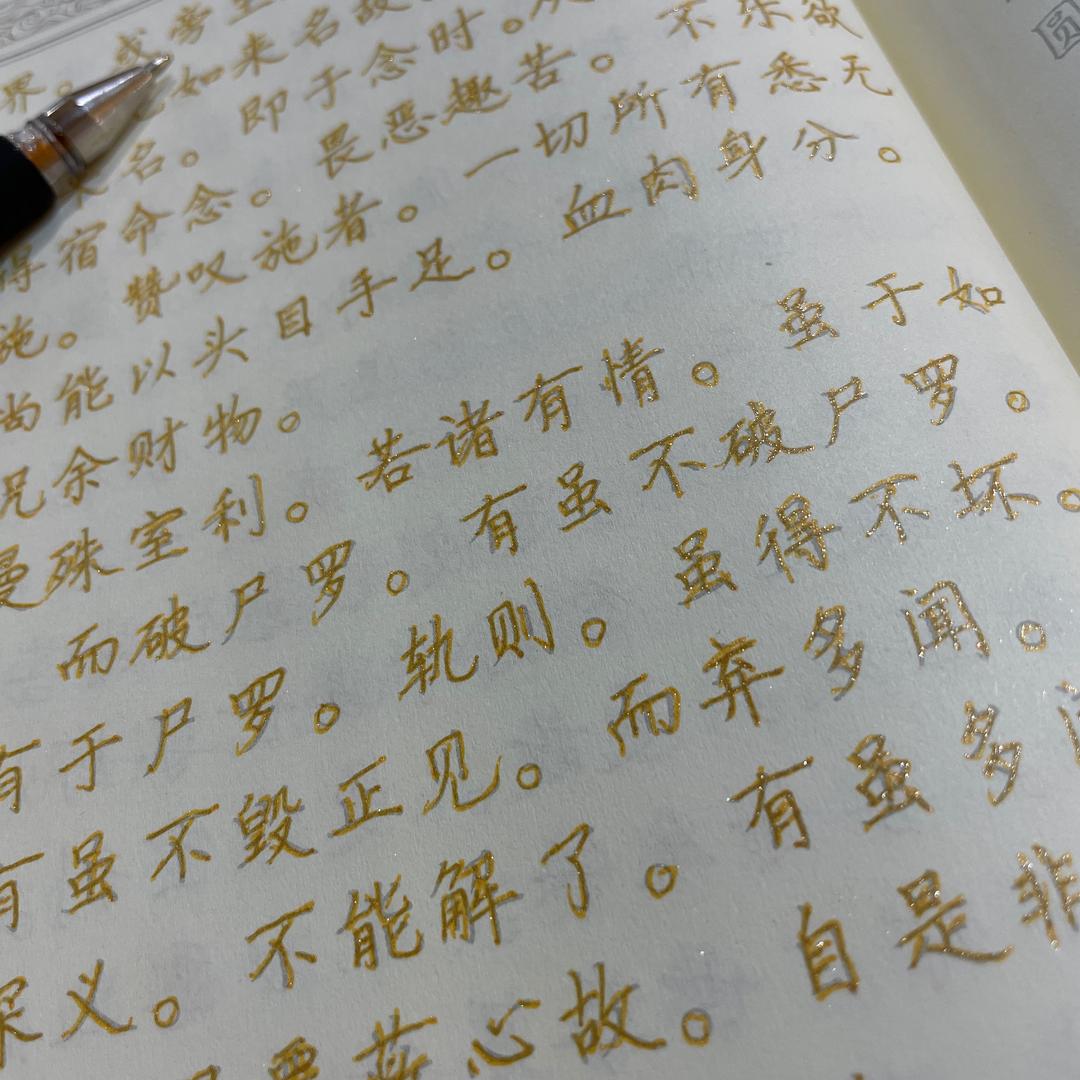 界。或旁生
如来名故
名。即于念时。从
得宿命念。畏恶趣苦。不乐欲
施。赞叹施者。一切所有悉无
尚能以头目手足。血肉身分。
况余财物。
曼殊室利。若诸有情。虽于如
而破尸罗。有虽不破尸罗。
有于尸罗。轨则。虽得不坏。
有虽不毁正见。而弃多闻。
深义。不能解了。有虽多闻
蔽心故。自是非
圆